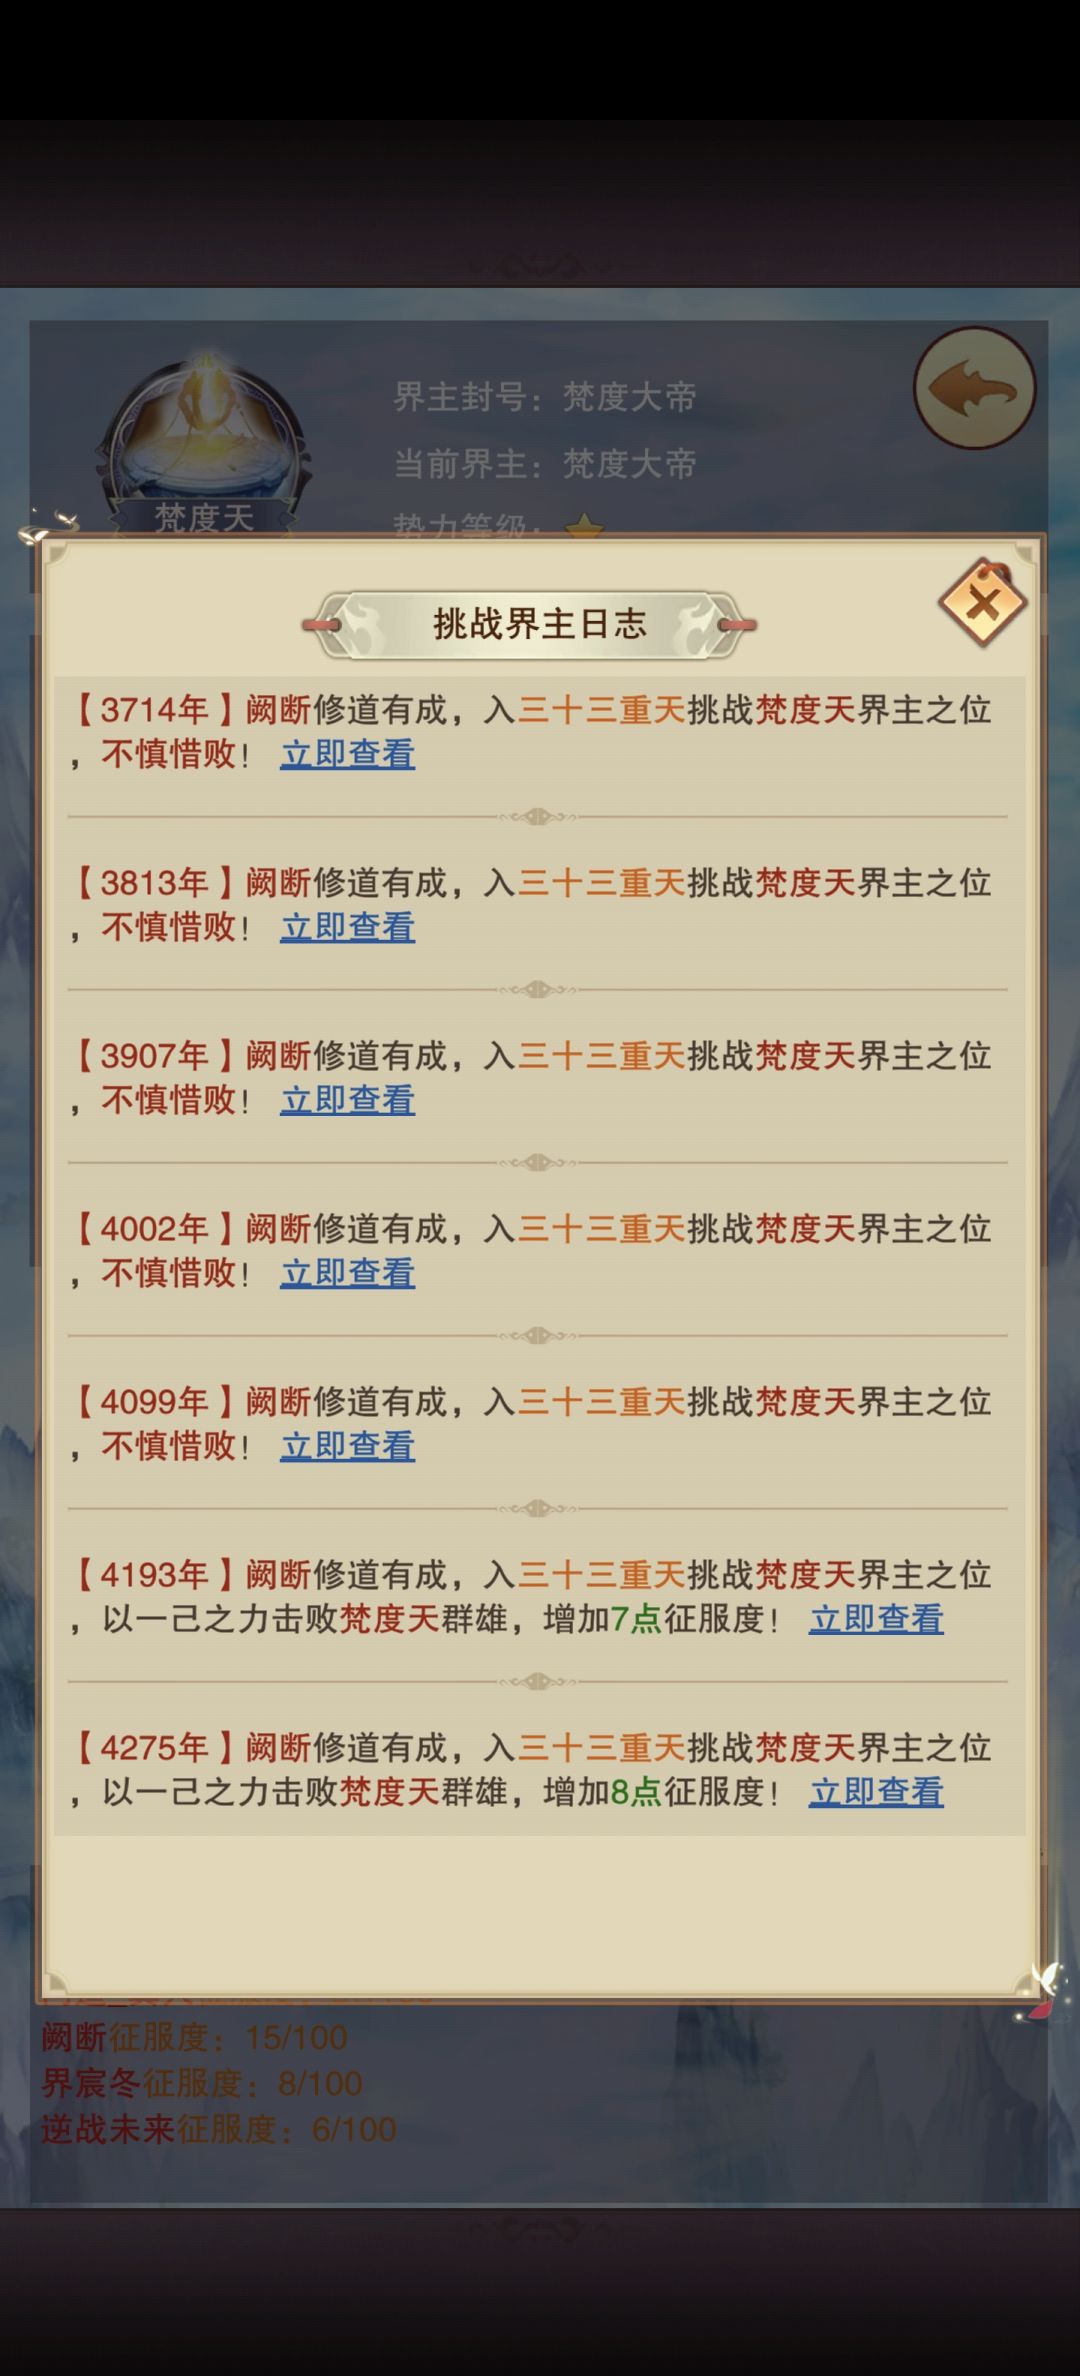 界主封号：梵度大帝
当前界主：梵度大帝
势力等级：
梵度天
挑战界主日志
【3714年】阙断修道有成，入三十三重天挑战梵度天界主之位
，不慎惜败！ 立即查看
【3813年】阙断修道有成，入三十三重天挑战梵度天界主之位
，不慎惜败！ 立即查看
【3907年】阙断修道有成，入三十三重天挑战梵度天界主之位
，不慎惜败！ 立即查看
【4002年】阙断修道有成，入三十三重天挑战梵度天界主之位
，不慎惜败！ 立即查看
【4099年】阙断修道有成，入三十三重天挑战梵度天界主之位
，不慎惜败！ 立即查看
【4193年】阙断修道有成，入三十三重天挑战梵度天界主之位
，以一己之力击败梵度天群雄，增加7点征服度！ 立即查看
【4275年】阙断修道有成，入三十三重天挑战梵度天界主之位
，以一己之力击败梵度天群雄，增加8点征服度！ 立即查看
阙断征服度：15/100
界宸冬征服度：8/100
逆战未来征服度：6/100